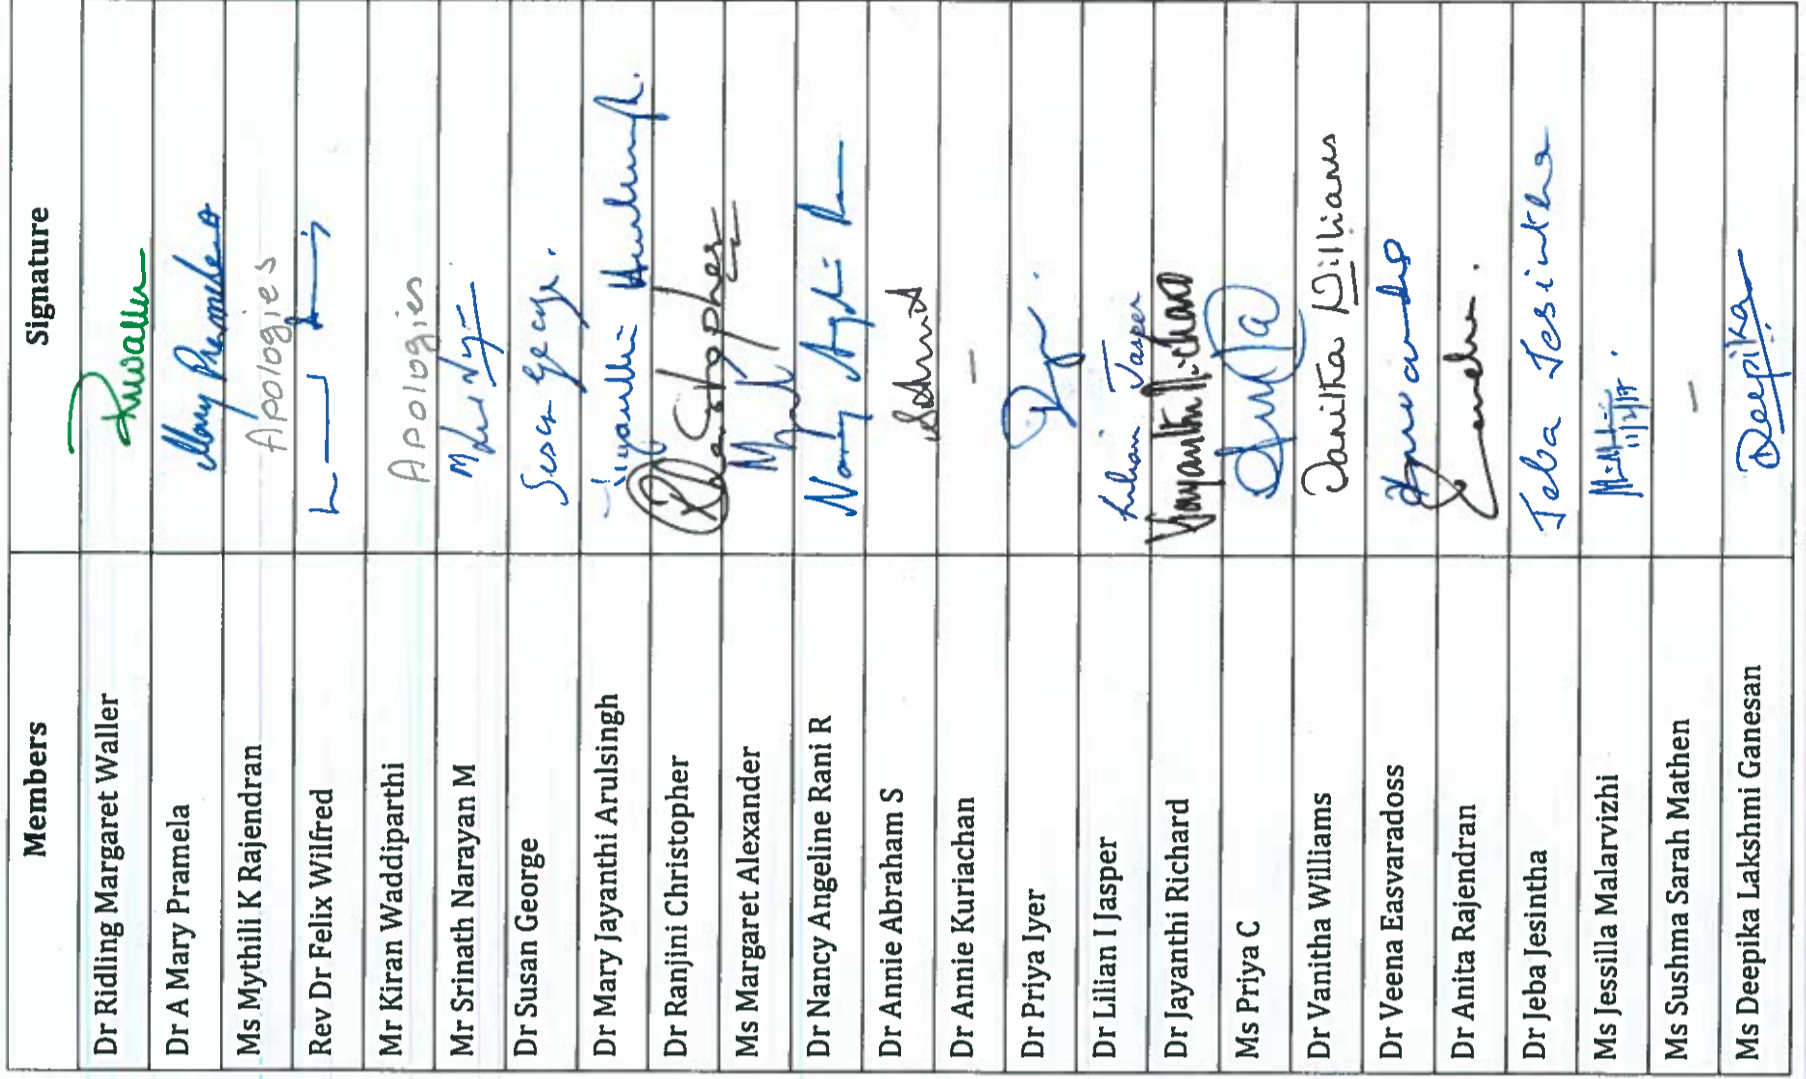 Members Signature
Dr Ridling Margaret Waller Rmwaller
Dr A Mary Pramela Mary Pramela
Ms Mythili K Rajendran Apologies
Rev Dr Felix Wilfred
Mr Kiran Waddiparthi Apologies
Mr Srinath Narayan M
Dr Susan George Susan George.
Dr Mary Jayanthi Arulsingh
Dr Ranjini Christopher Christopher
Ms Margaret Alexander
Dr Nancy Angeline Rani R Nancy
Dr Annie Abraham S
Dr Annie Kuriachan –
Dr Priya Iyer
Dr Lilian I Jasper Lilian Jasper
Dr Jayanthi Richard
Ms Priya C
Dr Vanitha Williams Vanitha Williams
Dr Veena Easvaradoss
Dr Anita Rajendran
Dr Jeba Jesintha Jeba Jesintha
Ms Jessilla Malarvizhi 11/2/17
Ms Sushma Sarah Mathen –
Ms Deepika Lakshmi Ganesan Deepika